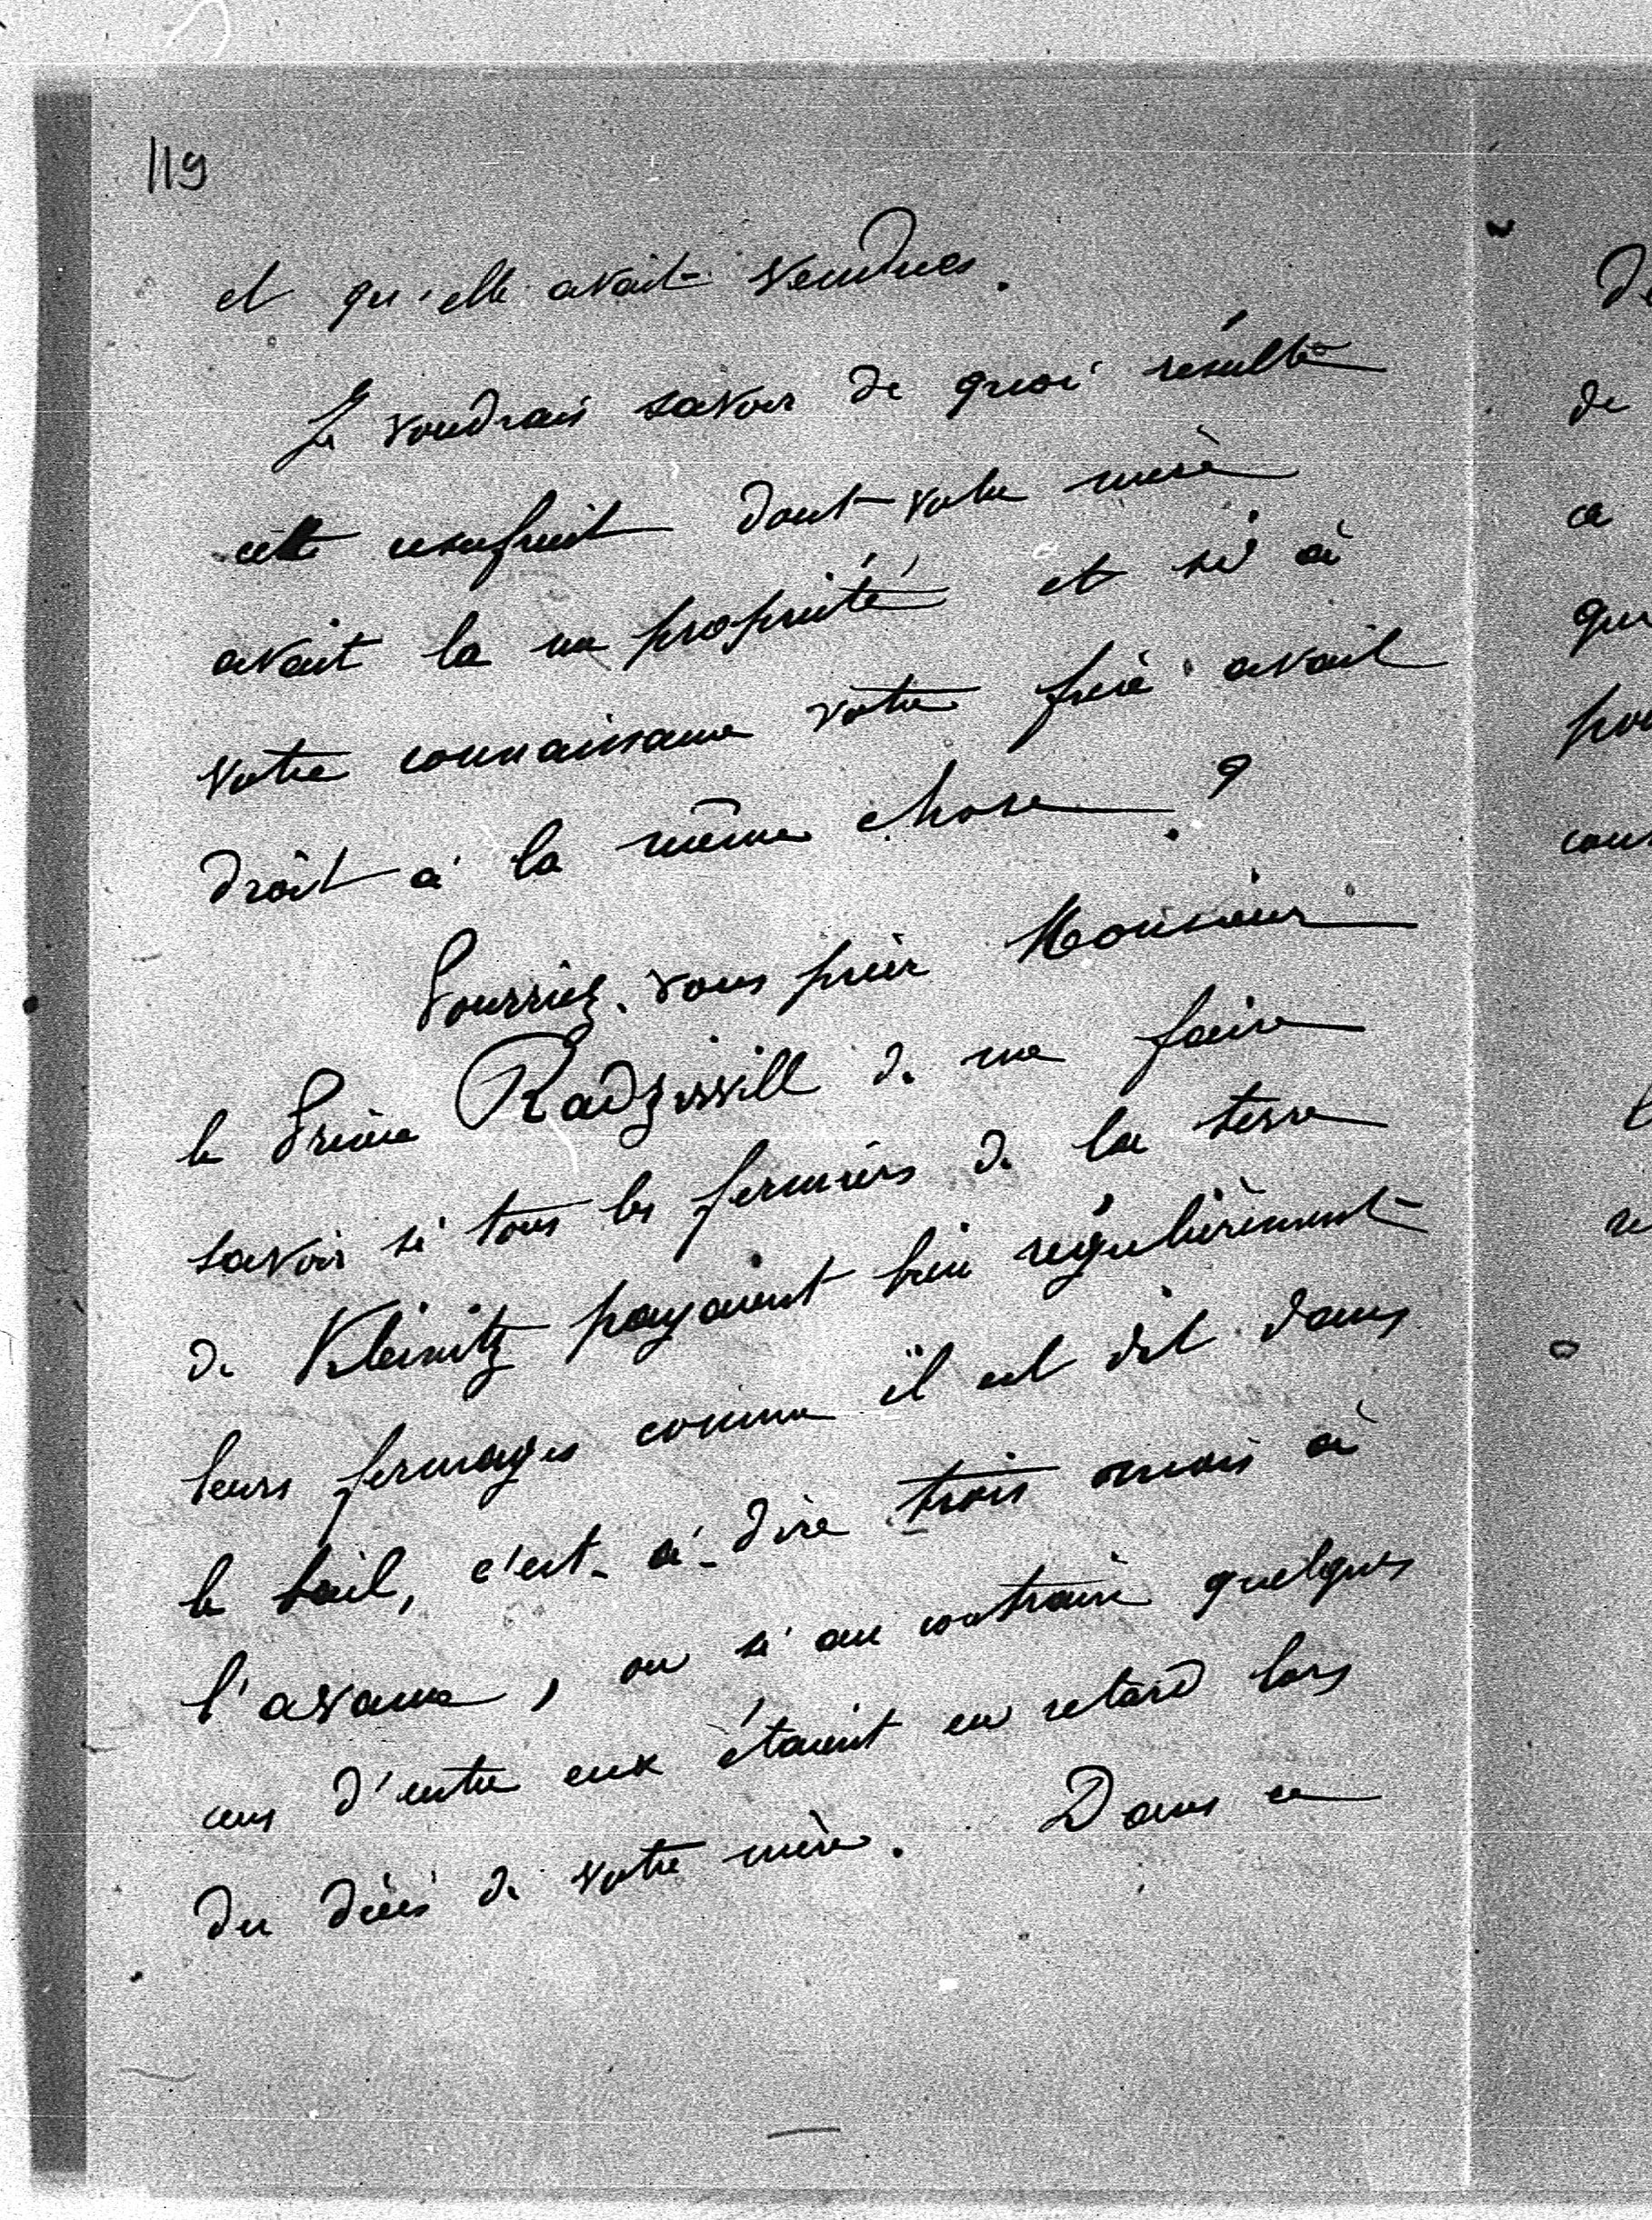 119
et qu'elle avait vendues.
Je voudrais savoir de quoi résulte
cette usufruit dont votre mère
avait la nu propriété et si à
votre connaissance votre frère avait
droit à la même chose ?
Pourriez-vous prier Monsieur
le Prince Radziwill de me faire
savoir si tous les fermiers de la terre
de Kleinitz payaient bien régulièrement
leurs fermages comme il est dit dans
le bail, c'est-à-dire trois mois à
l'avance, ou si au contraire quelques
uns d'entre eux étaient en retard lors
du décès de votre mère. Dans ce
de
ce